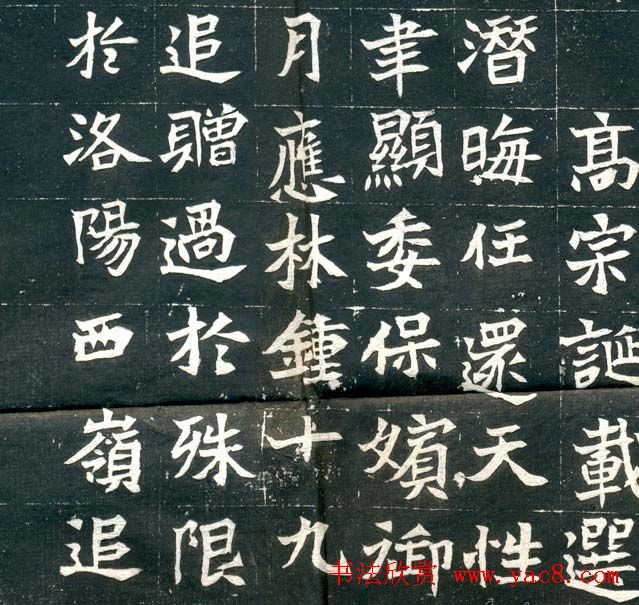 髙宗誕載選
潜晦任還天性
聿顯委保嬪御
月應林鍾十九
追贈過於殊限
於洛陽西嶺追
书法欣赏 www.yac8.com